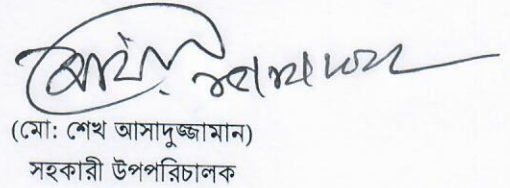 (মো: শেখ আসাদুজ্জামান)
সহকারী উপপরিচালক